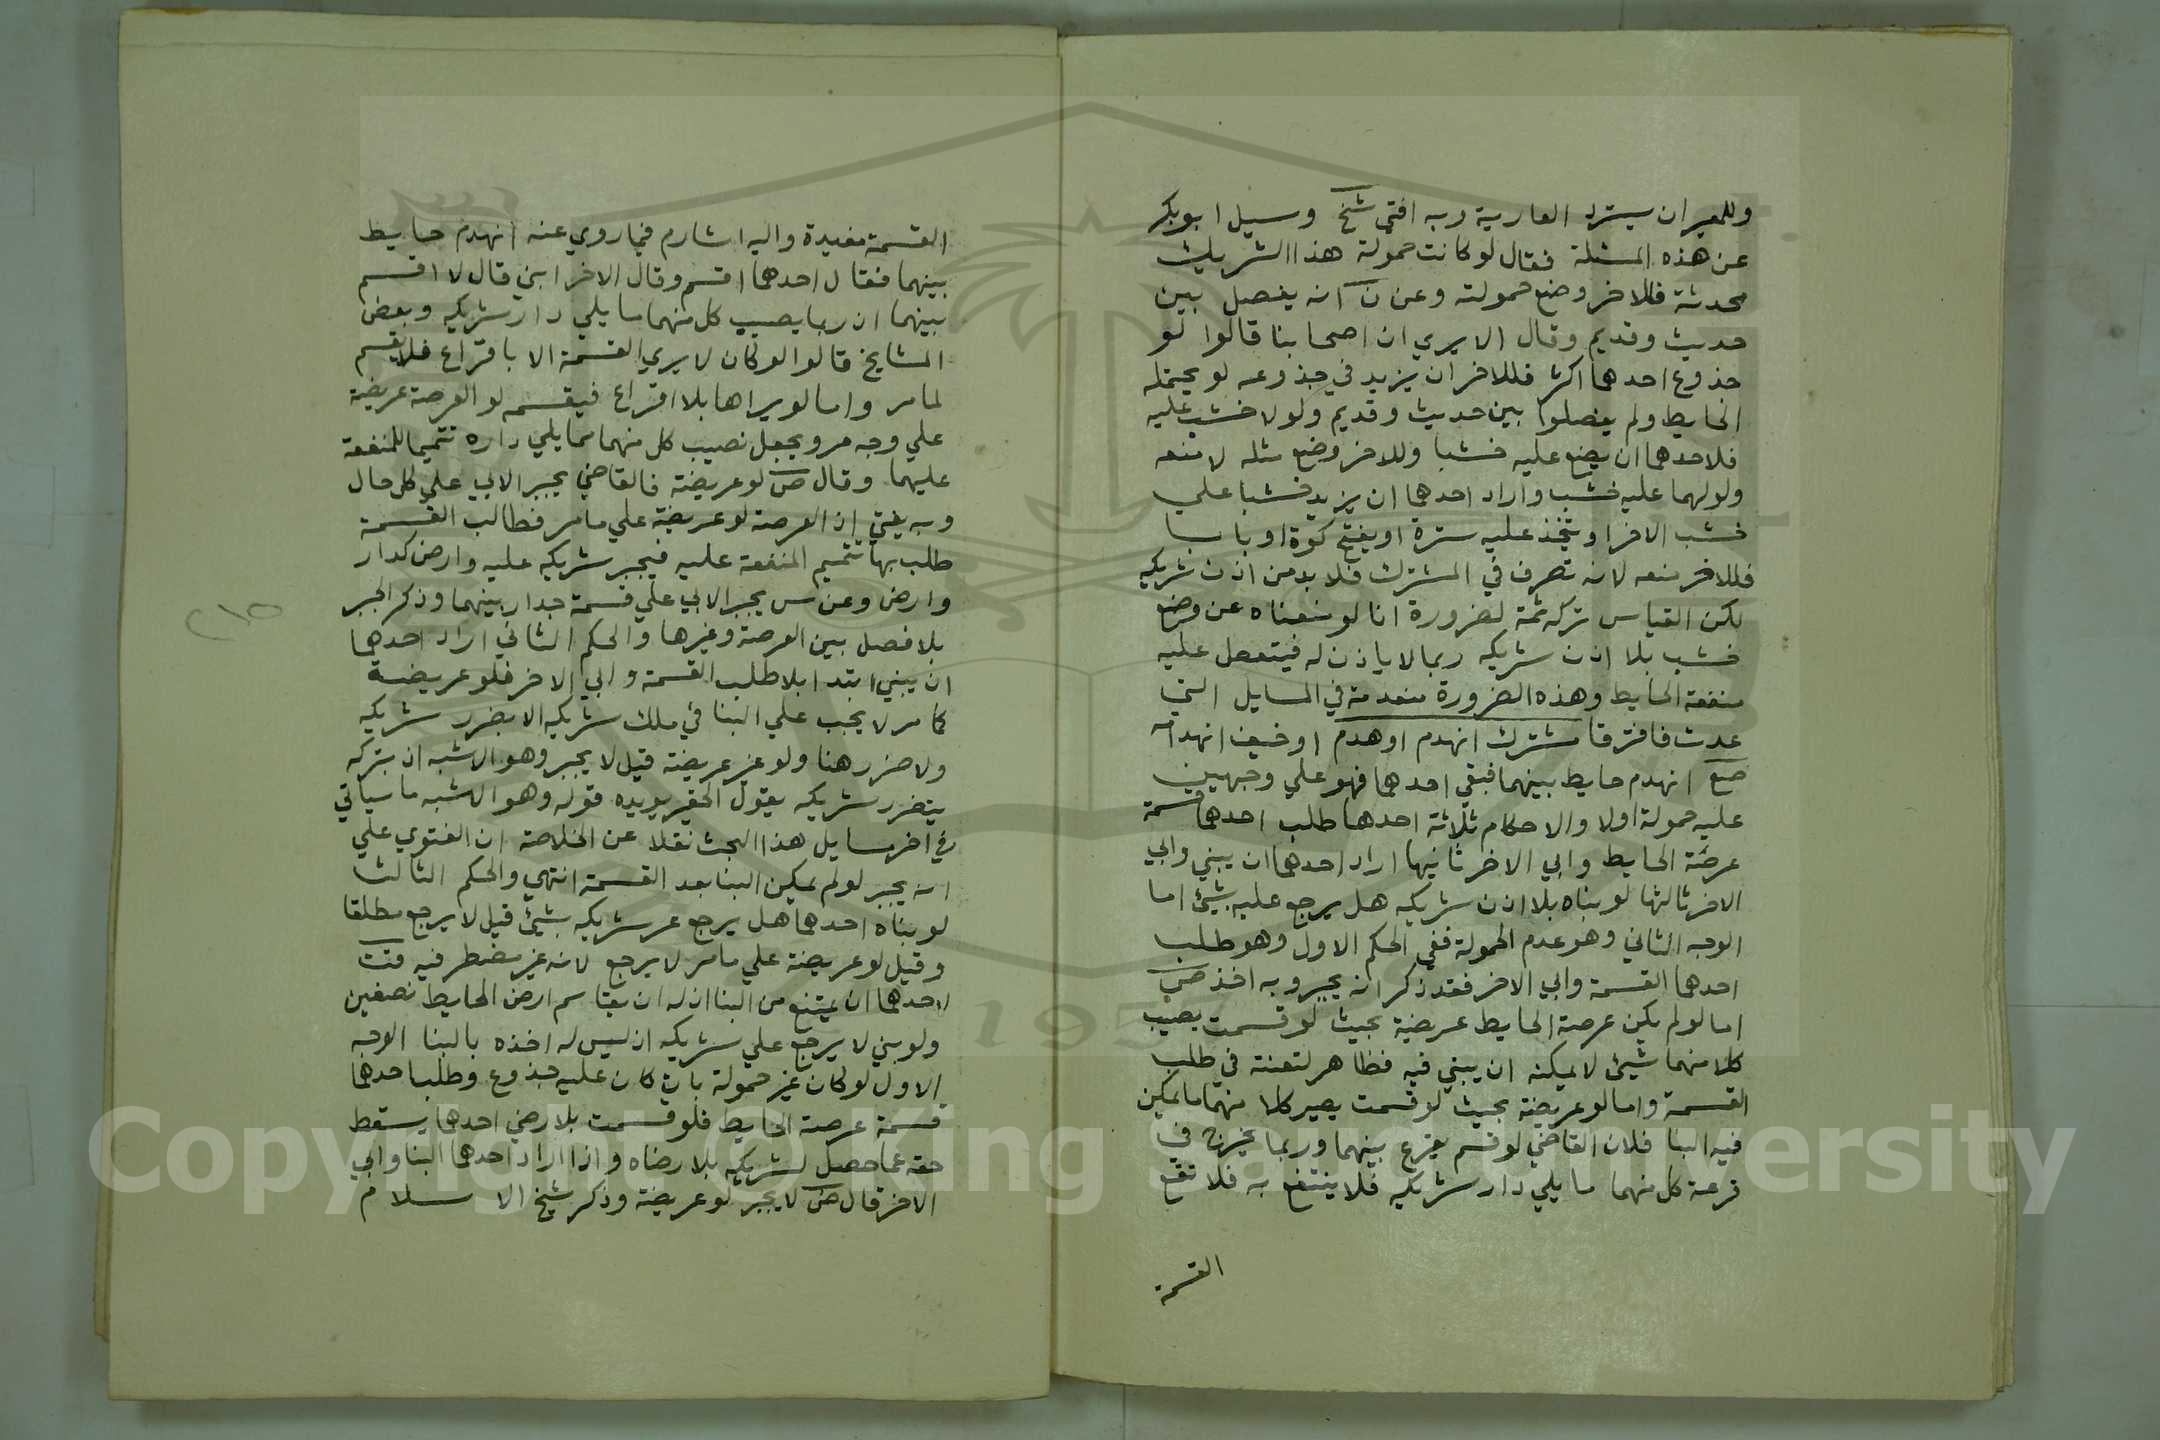 وللمعير ان يسترد العارية وبه افتي شيخ وسيل ابوبكر
عن هذه المسئلة فقال لو كانت حمولة هذا الشريك
محدثة فللاخر وضع حمولته وعن ن انه يفصل بين
حديث وقديم وقال الا يري ان اصحابنا قالوا لو
جذوع احدهما اكثر فللاخر ان يزيد في جذوعه لو يحتمله
الحايط ولم يفصلوا بين حديث وقديم ولو لا خشب عليه
فلاحدهما ان يضع عليه خشبا وللاخر وضع مثله لا منعه
ولو لهما عليه خشب واراد احدهما ان يزيد خشبا علي
خشب الاخر او يتخذ عليه سترة او يفتح كوة او بابا
فللاخر منعه لانه تصرف في المشترك فلا بد من اذن شريكه
لكن القياس تركه ثمة لضرورة انا لو منعناه عن وضع
خشب بلا اذن شريكه ربما لا ياذن له فيتعطل عليه
منفعة الحايط وهذه الضرورة منعدمة في المسايل التي
عدت فافترقا مشترك انهدم او هدم او خيف انهدامه
صع انهدم حايط بينهما فبقي احدهما فهو علي وجهين
عليه حمولة اولا والاحكام ثلاثة احدها طلب احدهما قسمة
عرصة الحايط وابي الاخر ثانيها اراد احدهما ان يبني وابي
الاخر ثالثها لو بناه بلا اذن شريكه هل يرجع عليه بشيئ اما
الوجه الثاني وهو عدم الحمولة ففي الحكم الاول وهو طلب
احدهما القسمة وابي الاخر فقد ذكر انه يجبر وبه اخذ ص
اما لو لم يكن عرصة الحايط عريضة بحيث لو قسمت يصيب
كلا منهما شيئ لا يمكنه ان يبني فيه فظاهر لتعنته في طلب
القسمة واما لو عريضة بحيث لو قسمت يصير كلا منهما ما يمكن
فيه البنا فلان القاضي لو قسم يقرع بينهما وربما يخرج في
قرعة كل منهما ما يلي دار شريكه فلا ينتفع به فلا تقع
القسمة
القسمة مفيدة واليه اشار م فيما روي عنه انهدم حايط
بينهما فقال احدهما اقسم وقال الاخر ابني قال لا اقسم
بينهما اذ ربما يصيب كل منهما ما يلي دار شريكه وبعض
المشايخ قالوا لو كان لا يري القسمة الا باقتراع فلا يقسم
لما مر واما لو يراها بلا اقتراع فيقسمه لو العرصة عريضة
علي وجه مر ويجعل نصيب كل منهما مما يلي داره تتميما للمنفعة
عليهما وقال ص لو عريضة فالقاضي يجبر الابي علي كل حال
وبه يفتي اذ العرصة لو عريضة علي ما مر فطالب القسمة
طلب بها تتميم المنفعة عليه فيجبر شريكه عليه وارض كدار
وارض وعن س يجبر الابي علي قسمة جدار بينهما وذكر الجبر
بلا فصل بين العرصة وغيرها والحكم الثاني اراد احدهما
ان يبني ابتدا بلا طلب القسمة وابي الاخر فلو عريضة
كما مر لا يجب علي البنا في ملك شريكه الا بضرر شريكه
ولا ضرر هنا ولو غير عريضة قيل لا يجبر وهو الاشبه اذ بتركه
يتضرر شريكه يقول الحقير يويده قوله وهو الاشبه ما سياتي
في اخر مسايل هذا البحث نقلا عن الخلاصة ان الفتوي علي
انه يجبر لو لم يمكن البنا بعد القسمة انتهي والحكم الثالث
لو بناه احدهما هل يرجع عر شريكه بشيئ قيل لا يرجع مطلقا
وقيل لو عريضة علي ما مر لا يرجع لانه غير مضطر فيه فت
لاحدهما ان يمتنع من البنا اذ له ان يقاسم ارض الحايط نصفين
ولو بني لا يرجع علي شريكه اذ ليس له اخذه بالبنا الوجه
الاول لو كان غير حمولة بان كان عليه جذوع وطلب احدهما
قسمة عرصة الحايط فلو قسمت بلا رضي احدهما يسقط
حقه عما حصل لشريكه بلا رضاه واذا اراد احدهما البنا وابي
الاخر قال ص لا يجبر لو عريضة وذكر شيخ الاسلام
٢١٥
Copyright © King Saud University
1957